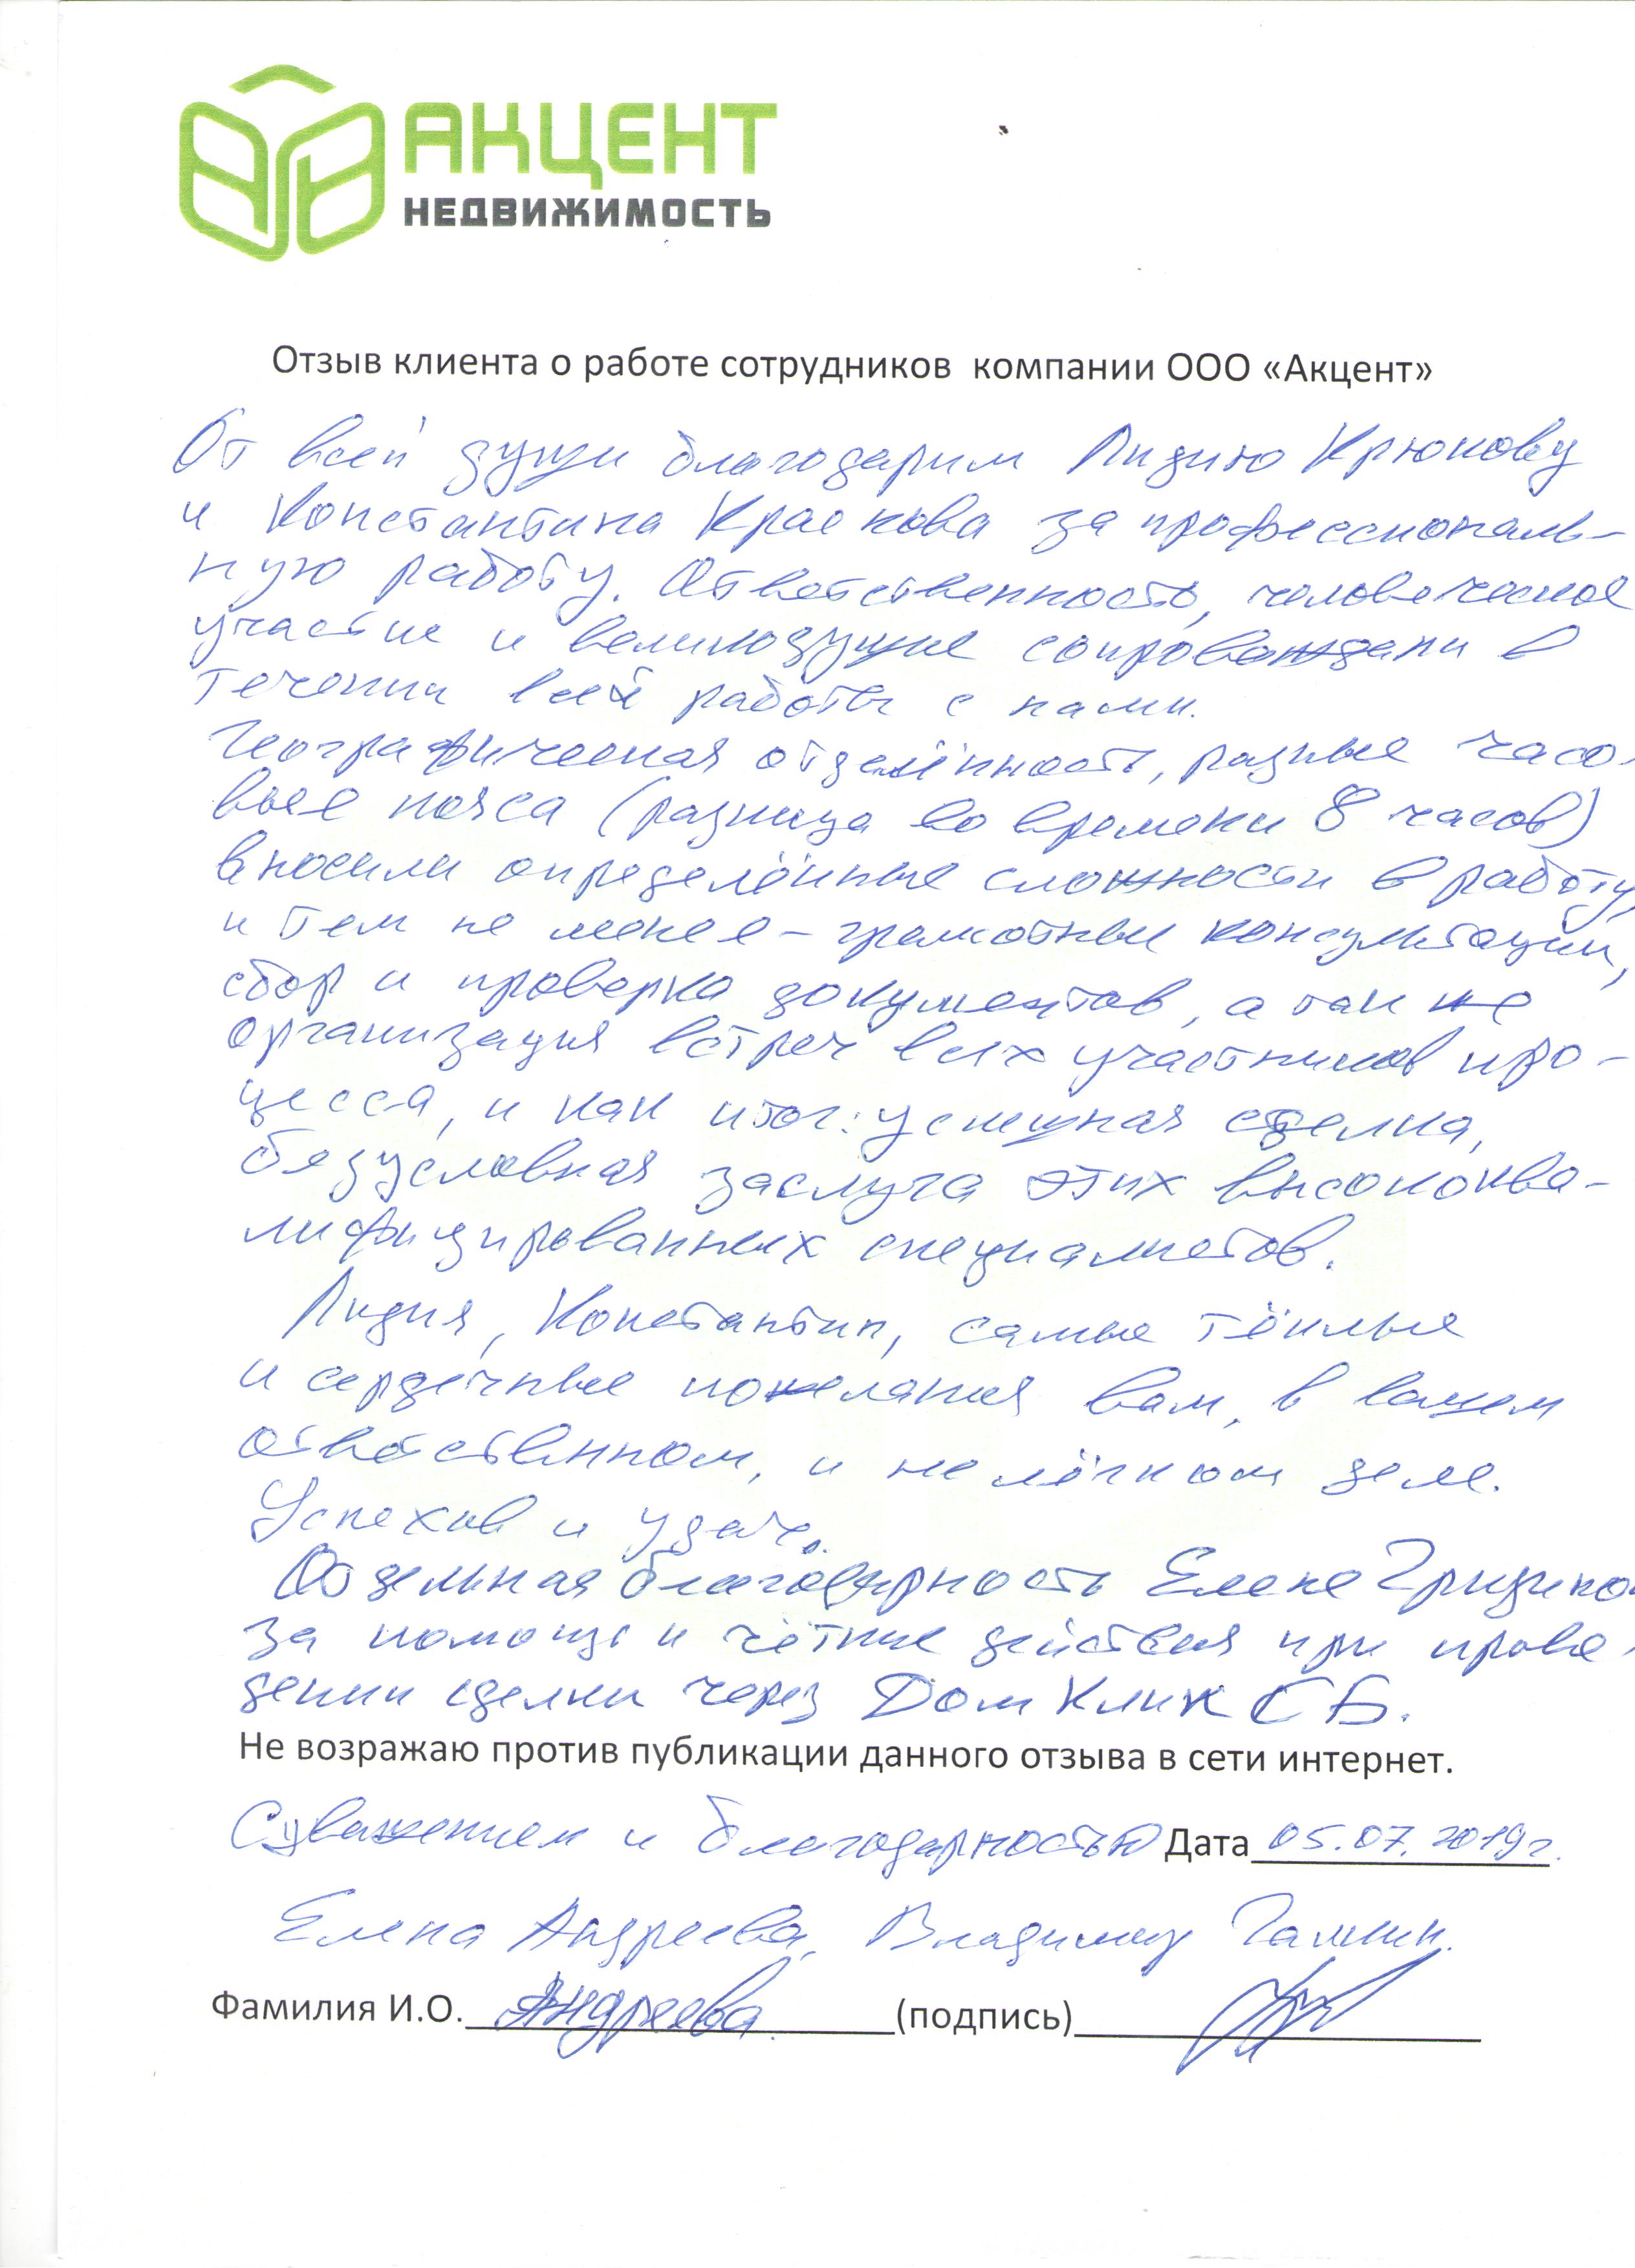 АКЦЕНТ
НЕДВИЖИМОСТЬ
Отзыв клиента о работе сотрудников компании ООО «Акцент»
От всей души благодарим Лидию Крюкову
и Константина Краскова за профессиональ-
ную работу. Ответственность, человеческое
участие и великодушие сопровождали в
течении всей работы с нами.
Географическая отдалённость, разные часо-
вые пояса (разница во времени 8 часов)
вносили определённые сложности в работу,
и тем не менее - грамотные консультации,
сбор и проверка документов, а так же
организация встреч всех участников про-
цесса, и как итог: успешная сделка,
безусловная заслуга этих высококва-
лифицированных специалистов.
Лидия, Константин, самые тёплые
и сердечные пожелания вам, в вашем
ответственном, и не лёгком деле.
Успехов и удач.
Отдельная благодарность Елене
за помощь и чёткие действия при прове-
дении сделки через Дом Клик СБ.
Не возражаю против публикации данного отзыва в сети интернет.
С уважением и благодарностью Дата 05.07.2019г.
Елена Андреева, Владимир Галкин.
Фамилия И.О. Андреева (подпись)